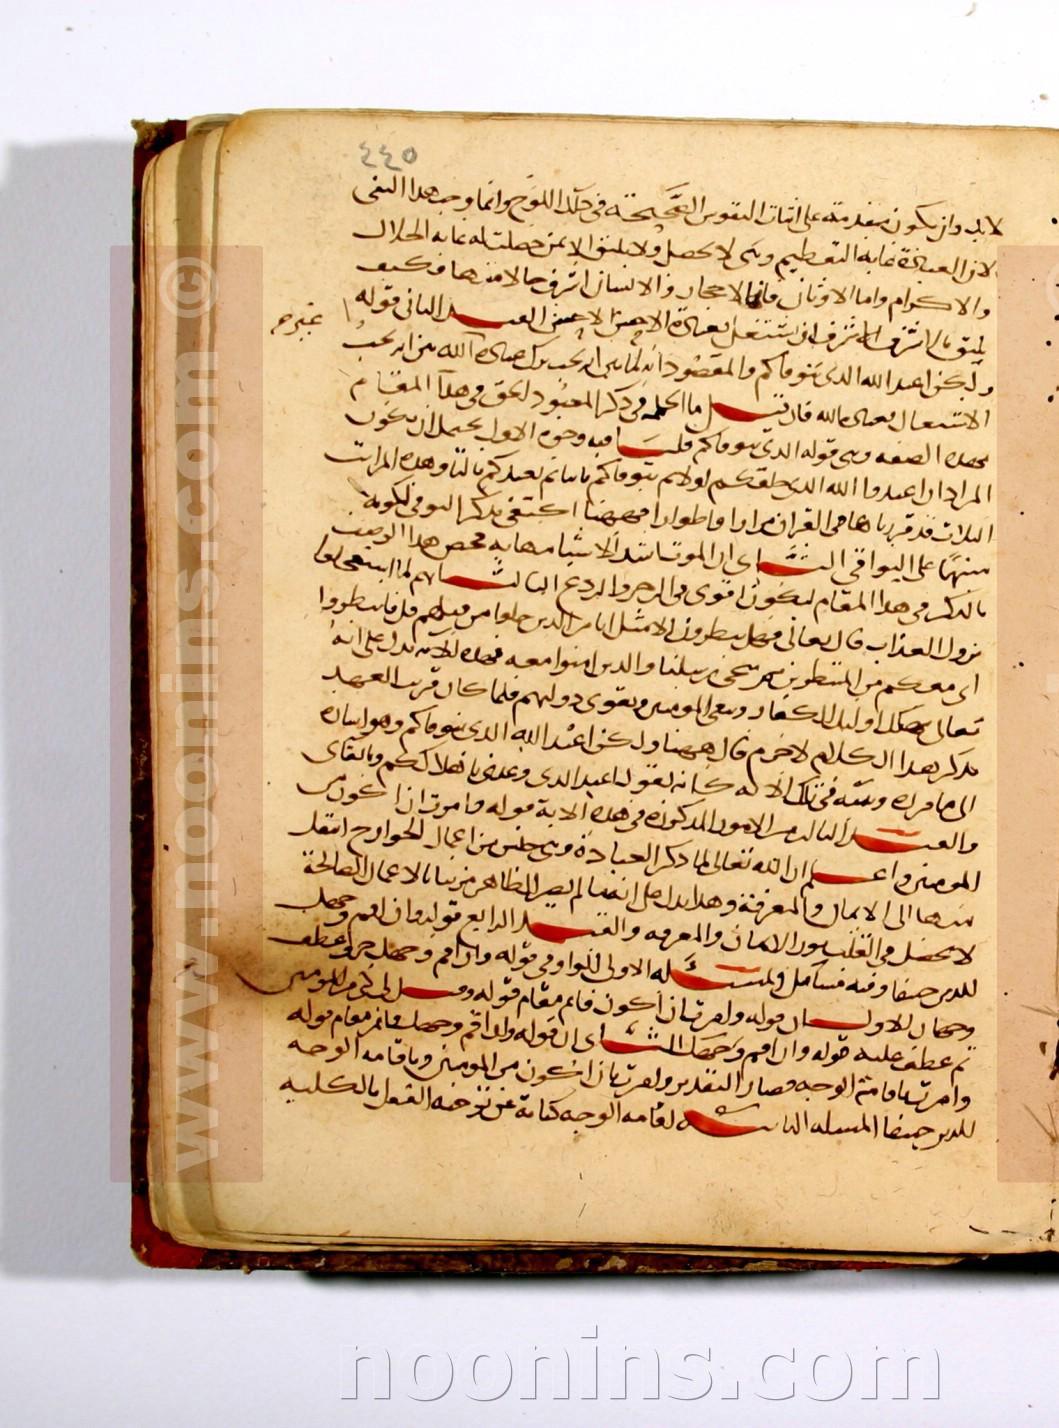 ٤٤٥
لابد وان يكون مقدمة على اثبات النقوش الصحيحة في ذلك اللوح وانما وجب هذا النفي
لان العبادة غاية التعظيم وهي لا تحصل ولا تليق الا بمن حصلت له غاية الجلال
والاكرام واما الاوثان فانها الاحجار والانسان اشرف حالا منها فكيف
يليق بالاشرف ان يشتغل بعبادة الاخس القيد الثاني قوله
ولكن اعبد الله الذي يتوفاكم والمقصود انه لما بين انه يجب ترك عبادة الله بين انه يجب
الاشتغال بعبادة الله فان قيل ما الحكمة في ذكر المعبود الحق في هذا المقام
بهذه الصفة وهي قوله الذي يتوفاكم قلنا فيه وجوه الاول يحتمل ان يكون
المراد ان اعبدوا الله الذي خلقكم اولا ثم يتوفاكم ثانيا ثم يعيدكم ثالثا وهذه المراتب
الثلاث قد قررناها في القران مرارا واطوارا فههنا اكتفى بذكر التوفي لكونه
منبها على البواقي الثاني ان الموت اشد الاشياء مهابة فخص هذا الوصف
بالذكر في هذا المقام ليكون اقوى في الزجر والردع الثالث انهم لما استعجلوا
نزول العذاب قال تعالى فهل ينتظرون الا مثل ايام الذين خلوا من قبلهم قل فانتظروا
اني معكم من المنتظرين ثم ننجي رسلنا والذين امنوا معه فهذه الاية تدل على انه
تعالى يهلك اوليك الكفار ويبقي المومنين ويقوي دولتهم فلما كان قريب العهد
بذكر هذا الكلام لا جرم قال ههنا ولكن اعبد الله الذي يتوفاكم وهو اشارة
الى ما قرره وبينه في تلك الاية كانه يقول اعبد الذي وعدني باهلاككم وبابقاي
والقيد الثالث من الامور المذكورة في هذه الاية قوله وامرت ان اكون من
المومنين واعلم ان الله تعالى لما ذكر العبادة وهي جنس من اعمال الجوارح انتقل
منها الى الايمان والمعرفة وهذا يدل على انه ما لم يصر الظاهر مزينا بالاعمال الصالحة
لا يحصل في القلب نور الايمان والمعرفة والقيد الرابع قوله وان اقم وجهك
للدين حنيفا وفيه مسايل المسئلة الاولى الواو في قوله وان اقم وجهك حرف عطف
وجهان الاول ان قوله وامرت ان اكون قايم مقام قوله وقيل لي كن من المومنين
ثم عطف عليه قوله وان اقم وجهك الثاني ان قوله وان اقم وجهك قايم مقام قوله
وامرت باقامة الوجه فصار التقدير وامرت بان اكون من المومنين وباقامة الوجه
للدين حنيفا المسلة الثانية اقامة الوجه كناية عن توجيه العقل بالكلية
www.noonins.com ©
noonins.com